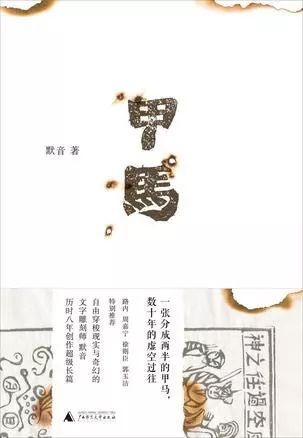 甲馬
默音 著
一张分成两半的甲马，
数十年的虚空过往
路内 周嘉宁 徐则臣 郭玉洁
特别推荐
自由穿梭现实与奇幻的
文字雕刻师 默音
历时八年创作超级长篇
广西师范大学出版社